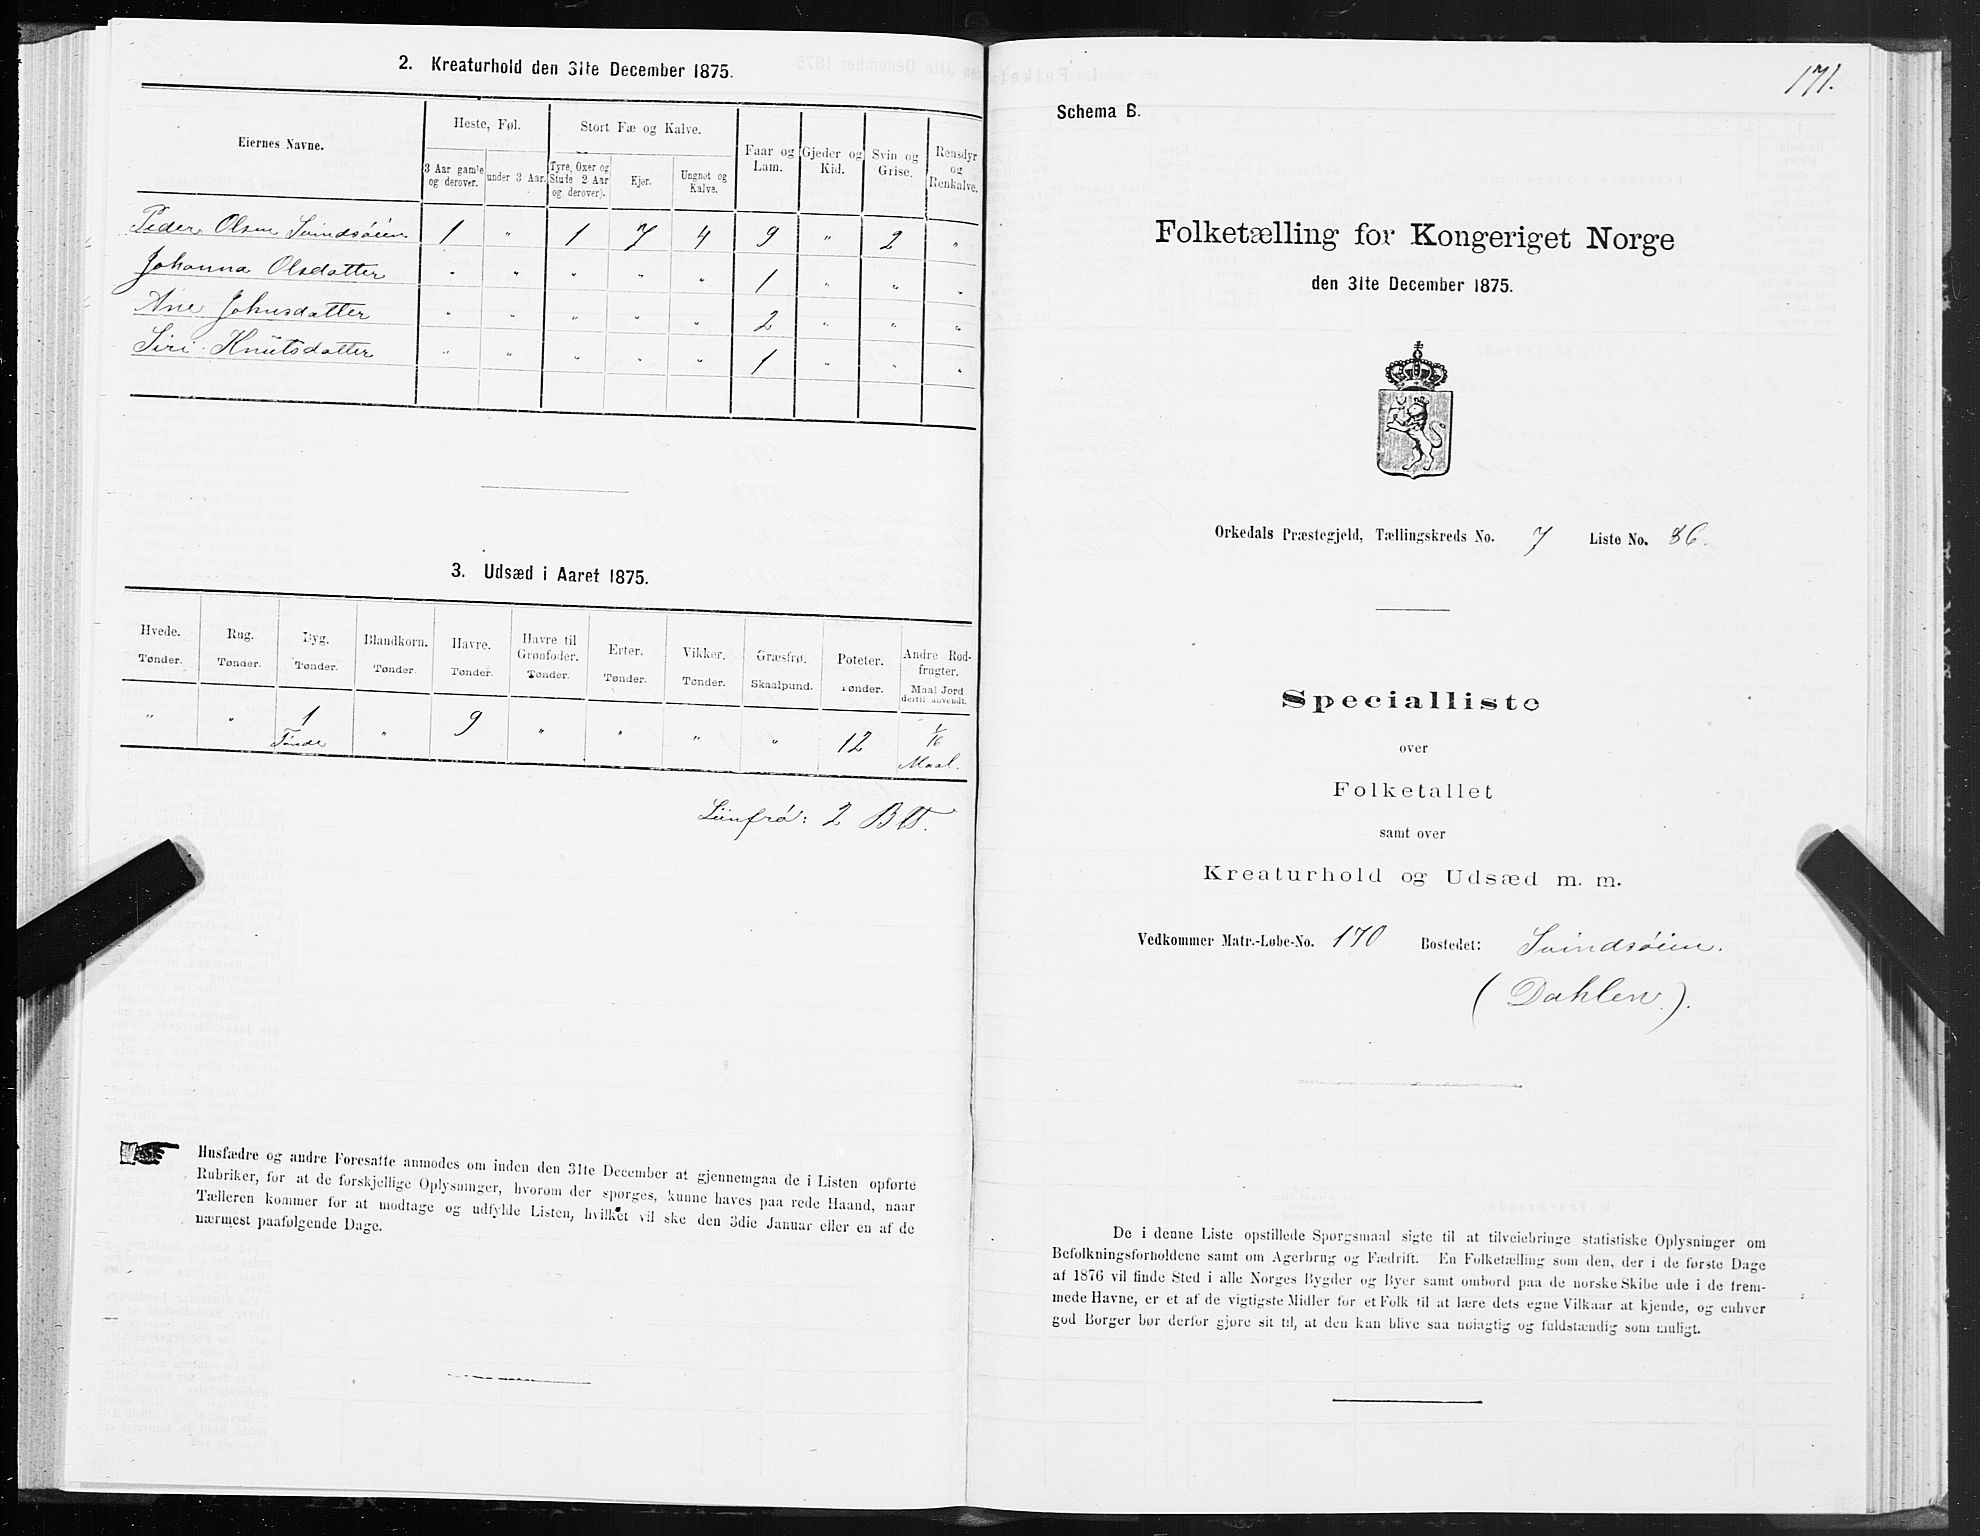 2. Kreaturhold den 31te December 1875.
Eiernes Navne.
Heste, Føl.
Stort Fæ og Kalve.
3 Aar gamle og derover.
under 3 Aar.
Tyre, Oxer og Stude 2 Aar og derover).
Kjer.
Ungnøt og Kalve.
Faar og Lam.
Gjeder og Kid.
Svin og Grise.
Rensdyr og Renkalve.
Peder Olsen Svindsøien 1 " 1 7 4 9 " 2 "
Johanna Olsdatter " " " " " 1 " " "
Ane Johnsdatter " " " " " 2 " " "
Siri Knutsdatter " " " " " 1 " " "
3. Udsæd i Aaret 1875.
Hvede. Rug. Byg. Blandkorn. Havre. Havre til Grønfoder. Erter. Vikker. Græsfrø. Poteter. Andre Rodfrugter.
Tønder. Tønder. Tønder. Tønder. Tønder. Tønder. Tønder. Tønder. Skaalpund. Tønder. Maal Jord dertil anvendt.
" " 1 Tønde " 9 " " " " 12 1/16 Maal.
Liinfrø: 2
Husfædre og andre Foresatte anmodes om inden den 31te December at gjennemgaa de i Listen opførte
Rubriker, for at de forskjellige Oplysninger, hvorom der spørges, kunne haves paa rede Haand, naar
Tælleren kommer for at modtage og udfylde Listen, hvilket vil ske den 3die Januar eller en af de
nærmest paafølgende Dage.
171.
Schema B.
Folketælling for Kongeriget Norge
den 31te December 1875.
Orkedals Præstegjeld, Tællingskreds No. 7 Liste No. 86.
Specialliste
over
Folketallet
samt over
Kreaturhold og Udsæd m. m.
Vedkommer Matr.-Løbe-No. 170 Bostedet: Svindsøien.
(Dahlen.).
De i denne Liste opstillede Spørgsmaal sigte til at tilveiebringe statistiske Oplysninger om
Befolkningsforholdene samt om Agerbrug og Fædrift. En Folketælling som den, der i de første Dage
af 1876 vil finde Sted i alle Norges Bygder og Byer samt ombord paa de norske Skibe ude i de frem-
mede Havne, er et af de vigtigste Midler for et Folk til at lære dets egne Vilkaar at kjende, og enhver
god Borger bør derfor gjøre sit til, at den kan blive saa nøiagtig og fuldstændig som muligt.